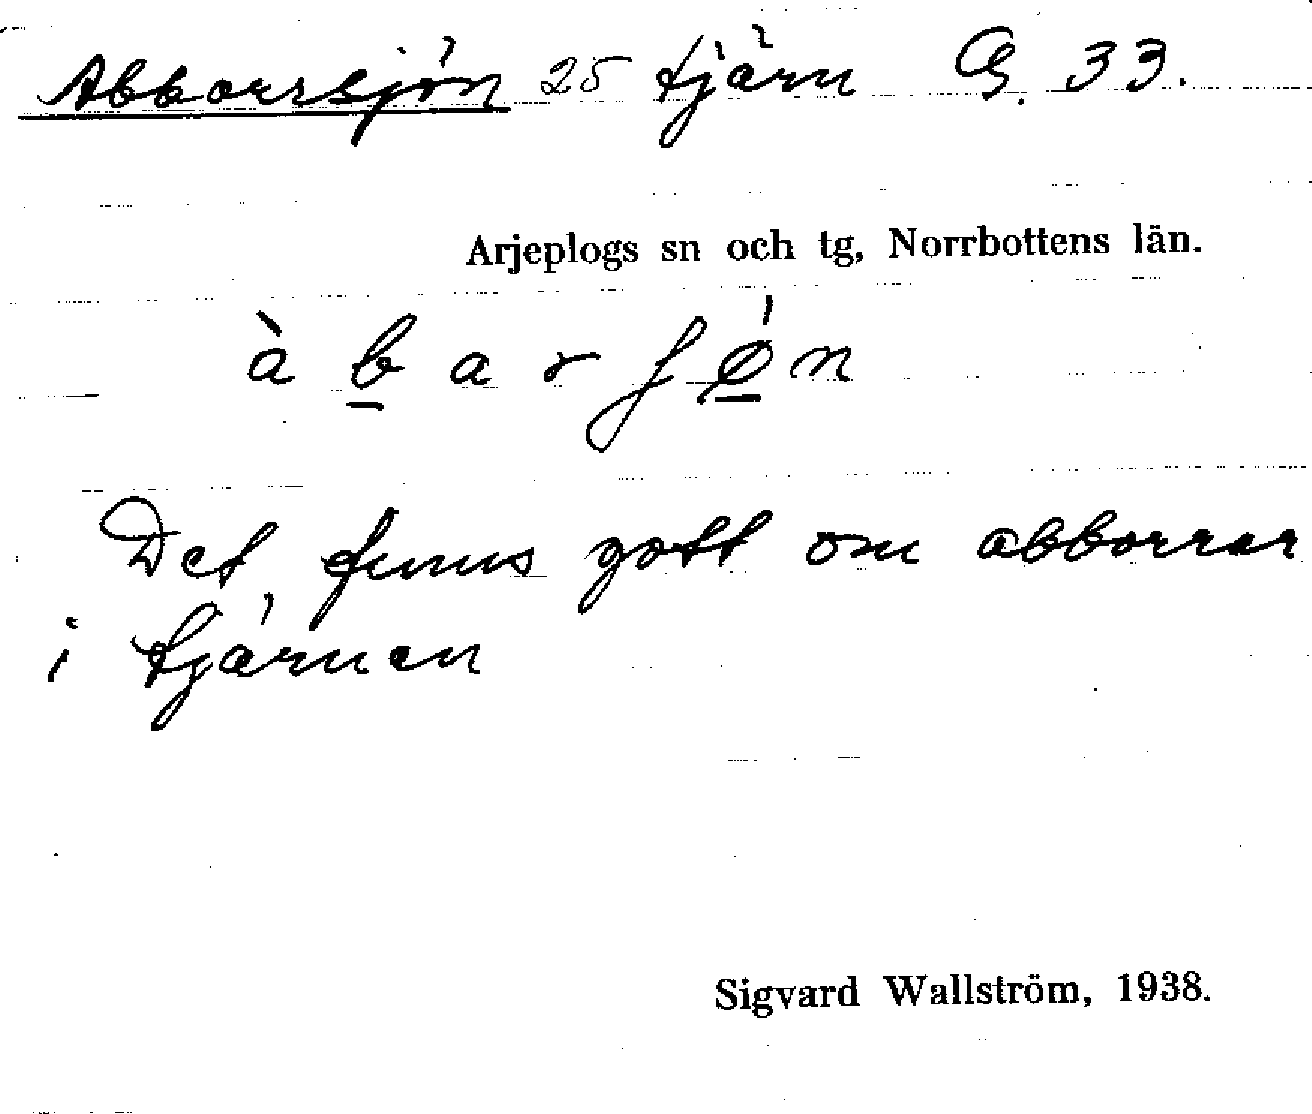 Abborrsjön 25 tjärn G. 33.
Arjeplogs sn och tg, Norrbottens län.
àb̲arʃǿ̲n
Det finns gott om abborrar
i tjärnen
Sigvard Wallström, 1938.